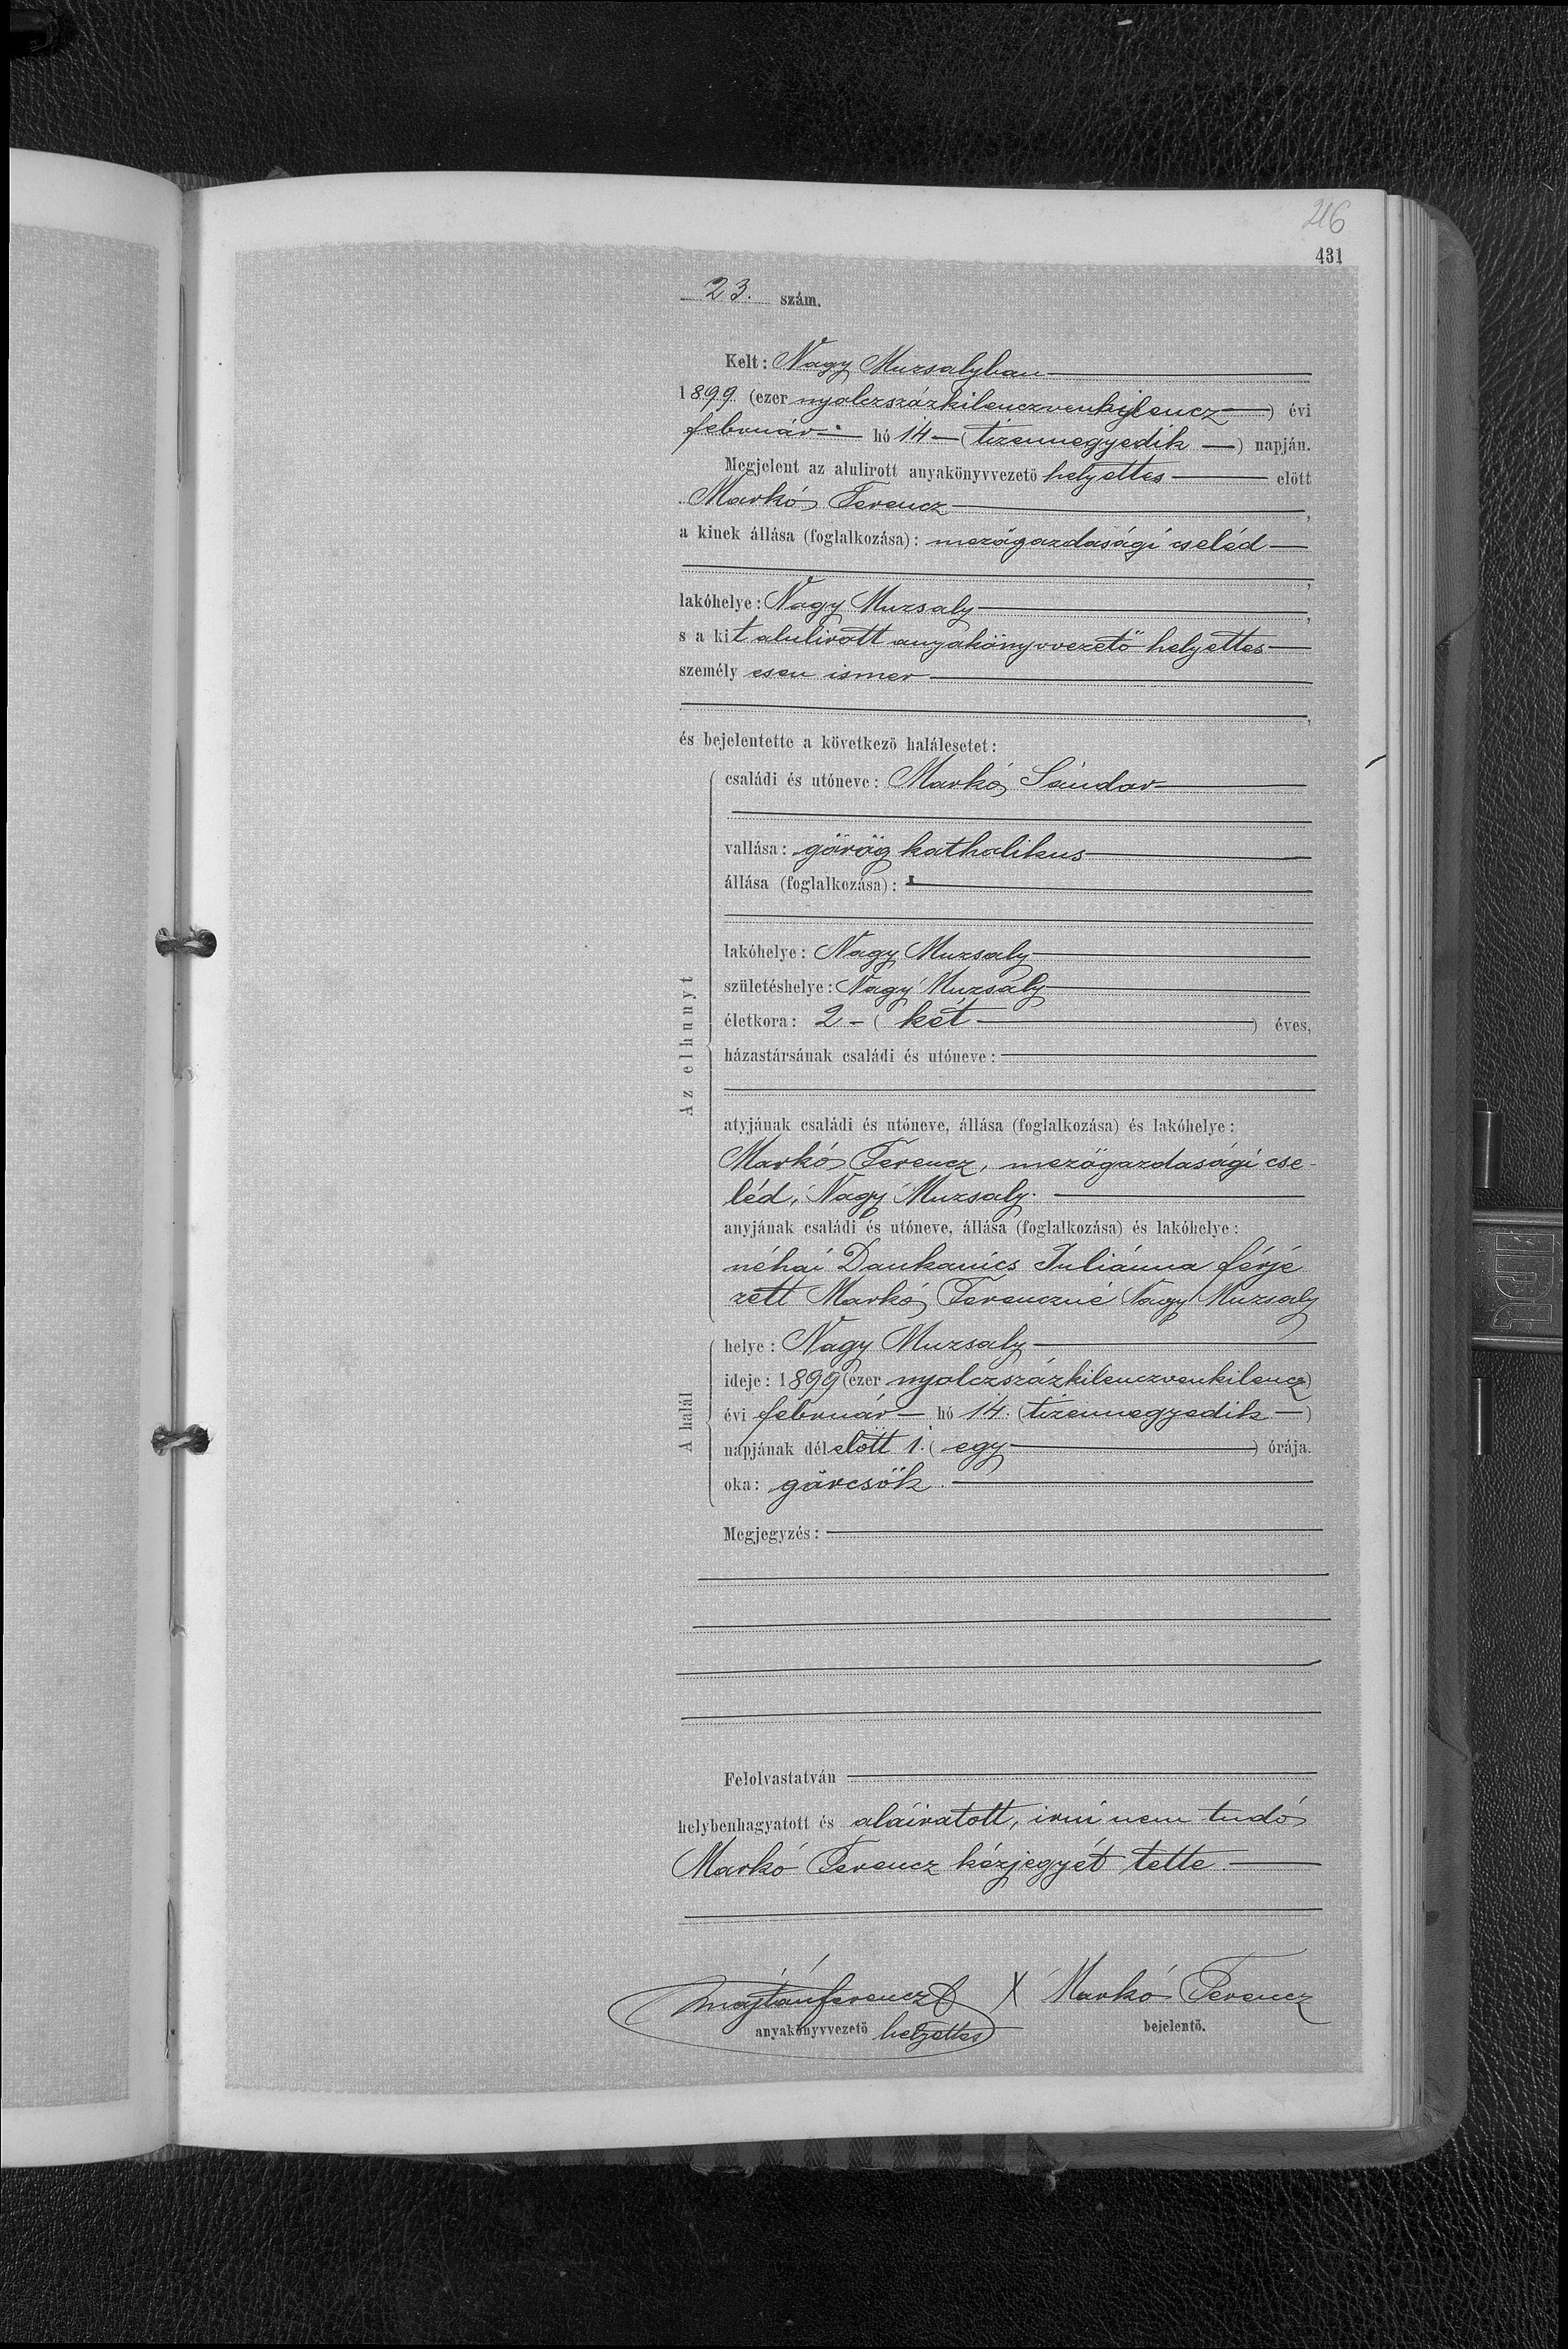 216
431
23. szám.
Kelt: Nagy Muzsalyban
1899 (ezer nyolczszázkilenczvenkilencz) évi
február hó 14 (tizennegyedik) napján.
Megjelent az alulirott anyakönyvvezető helyettes előtt
Markó Ferencz,
a kinek állása (foglalkozása): mezőgazdasági cseléd
,
lakóhelye: Nagy Muzsaly,
s a kit alulirott anyakönyvvezető helyettes
személyesen ismer
,
és bejelentette a következő halálesetet:
Az elhunyt
családi és utóneve: Markó Sándor
vallása: görög katholikus
állása (foglalkozása):
lakóhelye: Nagy Muzsaly
születéshelye: Nagy Muzsaly
életkora: 2 - (két) éves,
házastársának családi és utóneve:
atyjának családi és utóneve, állása (foglalkozása) és lakóhelye:
Markó Ferencz, mezőgazdasági cse-
léd, Nagy Muzsaly.
anyjának családi és utóneve, állása (foglalkozása) és lakóhelye:
néhai Dankanics Juliánna férje
zett Markó Ferenczné Nagy Muzsaly
A halál
helye: Nagy Muzsaly
ideje: 1899 (ezer nyolczszázkilenczvenkilencz)
évi február hó 14. (tizennegyedik)
napjának délelőtt 1. (egy) órája.
oka: görcsök.
Megjegyzés:
Felolvastatván
helybenhagyatott és aláiratott, irni nem tudó
Markó Ferencz kézjegyét tette.
Majtán Ferencz X Markó Ferencz
anyakönyvvezető helyettes bejelentő.